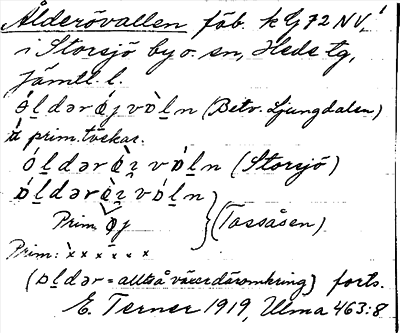 Ålderövallen fäb. k G 72 NV,
i Storsjö by o. sn, Heds tg,
Jämtl. l.
óldərǿjvòln (Betr. Ljungdalen)
prim. tvekar.
óldərǿvòln (Storsjö)
óldərǿvòln
Prim. øj (Tossåsen)
Prim: x x x x x x
(oldər = alltså växer däromkring) forts.
E. Terner 1919, Ulma 463:8